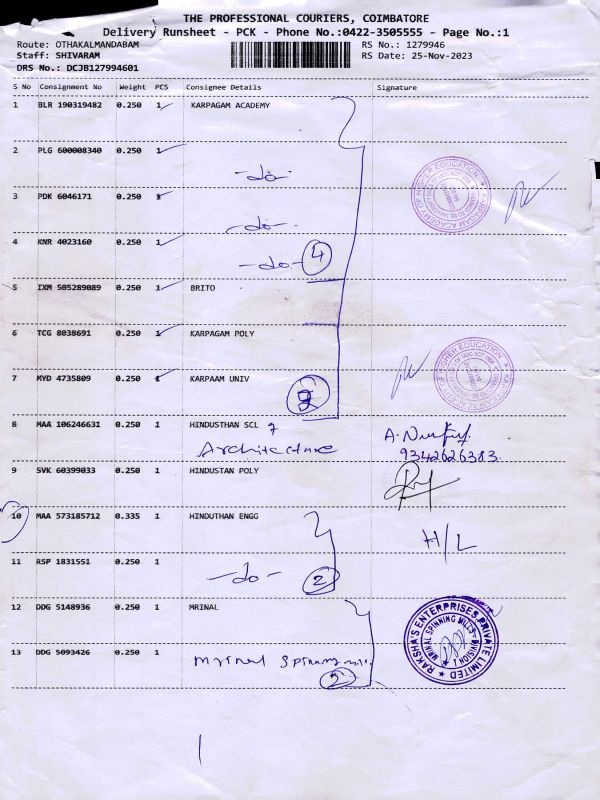 THE PROFESSIONAL COURIERS, COIMBATORE
Delivery Runsheet - PCK - Phone No.:0422-3505555 - Page No.:1
Route: OTHAKALMANDABAM RS No.: 1279946
Staff: SHIVARAM RS Date: 25-Nov-2023
DRS No.: DCJB127994601
S No Consignment No Weight PCS Consignee Details Signature
1 BLR 190319482 0.250 1 KARPAGAM ACADEMY
2 PLG 600008340 0.250 1
-do-
3 PDK 6046171 0.250 1
-do-
4 KNR 4023160 0.250 1
-do- 4
5 IXM 505289089 0.250 1 BRITO
6 TCG 8038691 0.250 1 KARPAGAM POLY
7 MYD 4735809 0.250 1 KARPAAM UNIV
8 MAA 106246631 0.250 1 HINDUSTHAN SCL
Architecture
9342626383
9 SVK 60399033 0.250 1 HINDUSTAN POLY
10 MAA 573185712 0.335 1 HINDUTHAN ENGG
H/L
11 RSP 1831551 0.250 1
-do- 2
12 DDG 5148936 0.250 1 MRINAL
RAKSHA'S ENTERPRISES PRIVATE LIMITED
MRINAL SPINNING MILLS
DIVISION 1
13 DDG 5093426 0.250 1
Mrinal Spinning mill
2